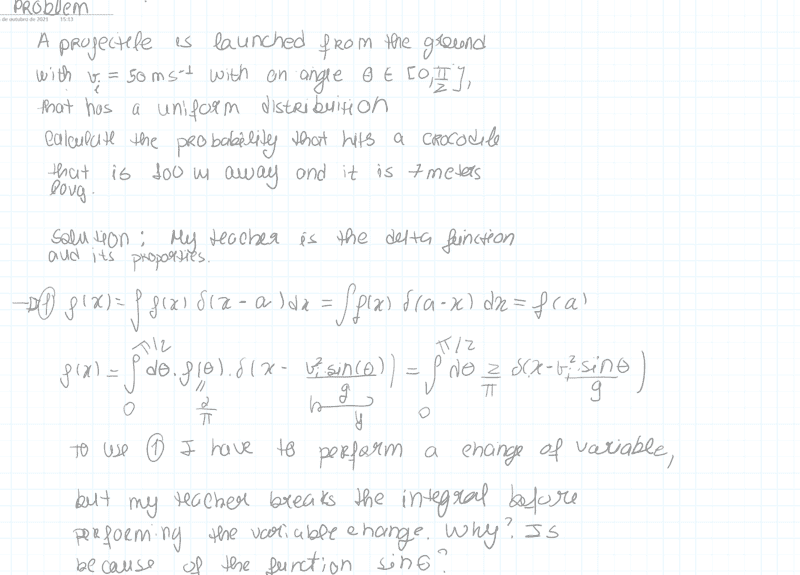 PROBLEM
de outubro de 2021 15:13
A projectile is launched from the ground
with v_i = 50 m s^-1 with an angle θ ∈ [0, π/2],
that has a uniform distribuition
Calculate the probability that hits a crocodile
that is 100 m away and it is 7 meters
long.
Solution: My teacher is the delta function
and its properties.
→ ① ρ(x) = ∫ ρ(x) δ(x - a) dx = ∫ ρ(x) δ(a - x) dx = ρ(a)
ρ(x) = ∫_0^{π/2} dθ . ρ(θ) . δ(x - v_i^2 . sin(θ) / g) = ∫_0^{π/2} dθ 2/π δ(x - v_i^2 . sin θ / g)
" 2/π
y
To use ① I have to perform a change of variable,
but my teacher breaks the integral before
performing the variable change. Why? Is
because of the function sin θ?